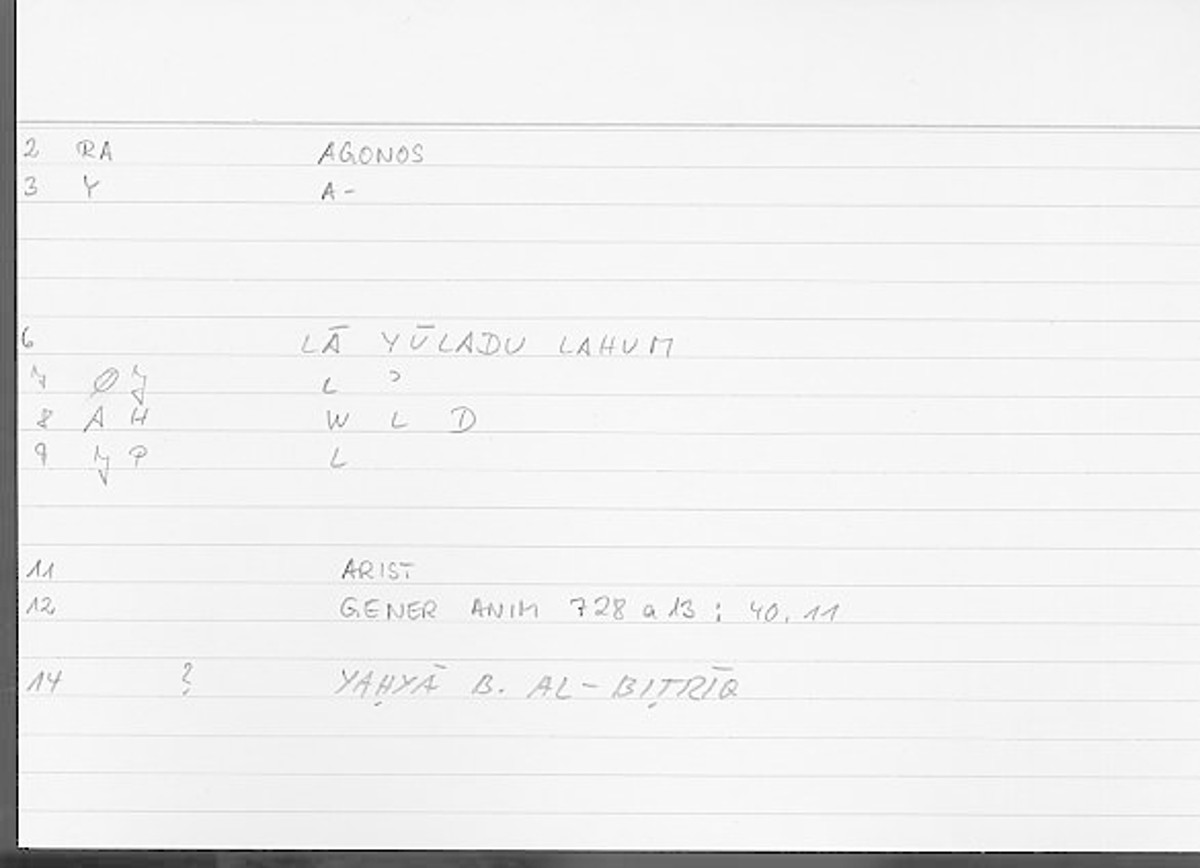 2 RA AGONOS
3 Y A-
6 LĀ YŪLADU LAHUM
7 Ø J L ʾ
8 A H W L D
9 J P L
11 ARIST
12 GENER ANIM 728 a 13 ; 40. 11
14 ? YAḤYĀ B. AL-BIṬRĪQ